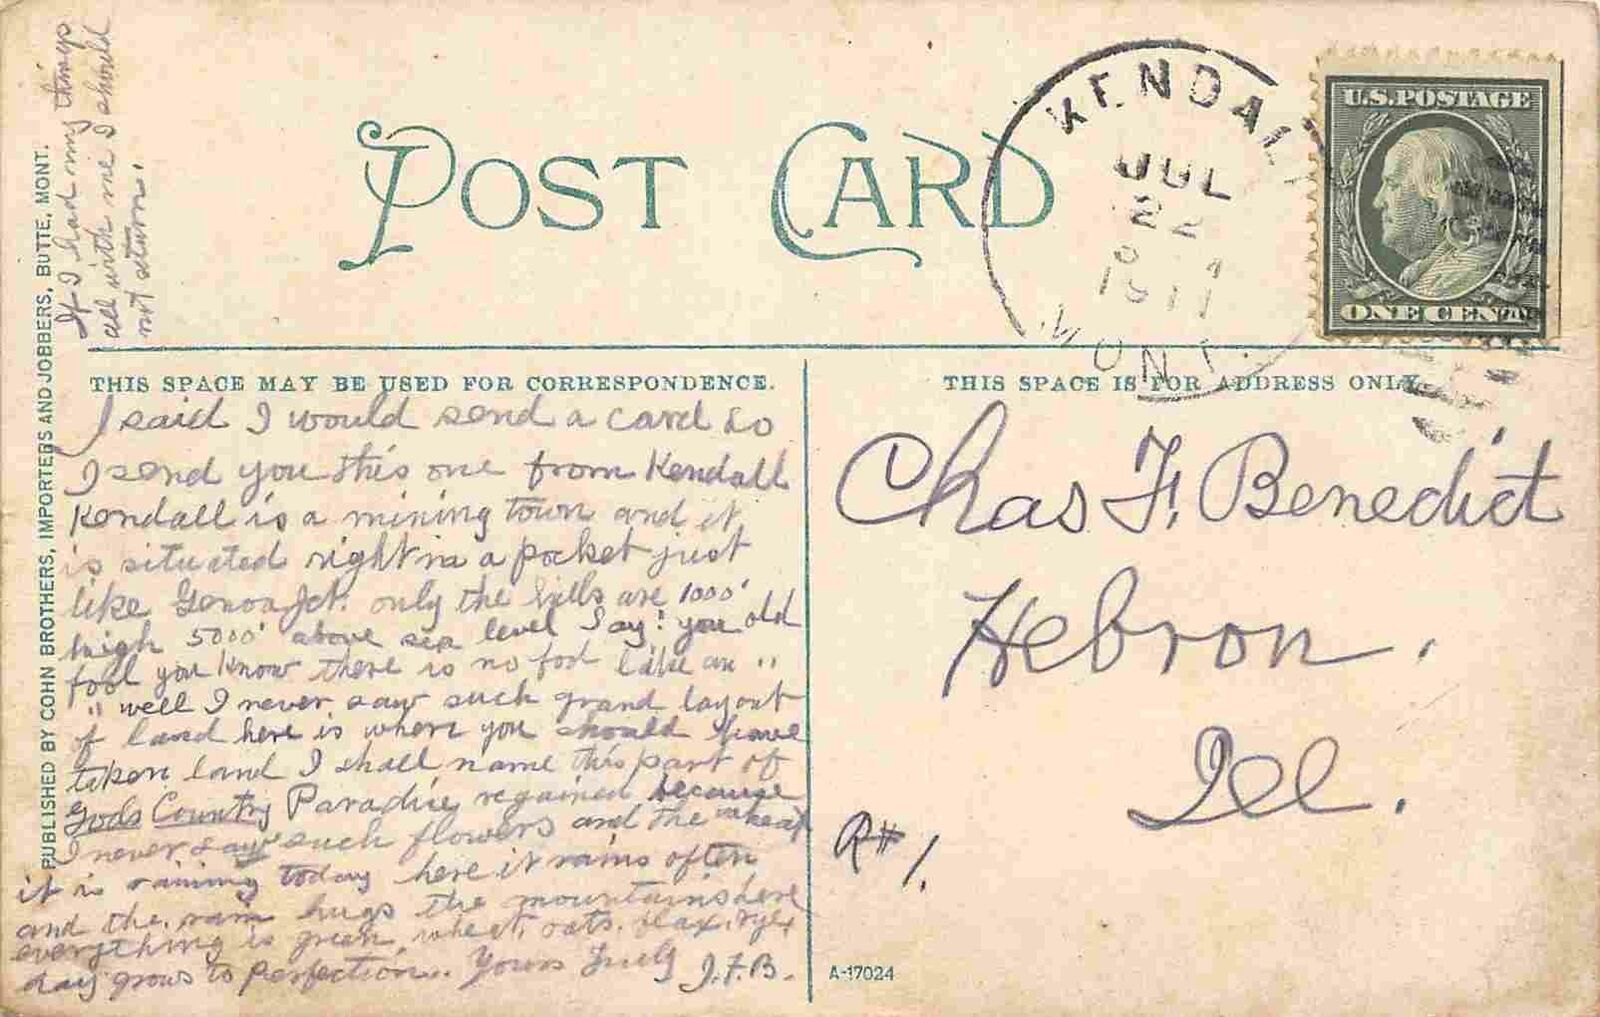 If I had my things
all with me I should
not return.
PUBLISHED BY COHN BROTHERS, IMPORTERS AND JOBBERS, BUTTE, MONT.
POST CARD
KENDALL
JUL
22
1911
MONT.
U.S. POSTAGE
ONE CENT
THIS SPACE MAY BE USED FOR CORRESPONDENCE.
I said I would send a card so
I send you this one from Kendall
Kendall is a mining town and it
is situated right in a pocket just
like Genoa Jct. only the hills are 1000'
high 5000' above sea level Say! you old
fool you know there is no fool like an "
" well I never saw such grand layout
of land here is where you should have
taken land I shall name this part of
Gods Country Paradise regained because
I never saw such flowers and the wheat
it is raining today here it rains often
and the rain hugs the mountains here
everything is green, wheat, oats, flax, rye,
hay grows to perfection. Yours Truly J.F.B.
THIS SPACE IS FOR ADDRESS ONLY.
Chas F. Benedict
Hebron,
Ill.
R# 1.
A-17024